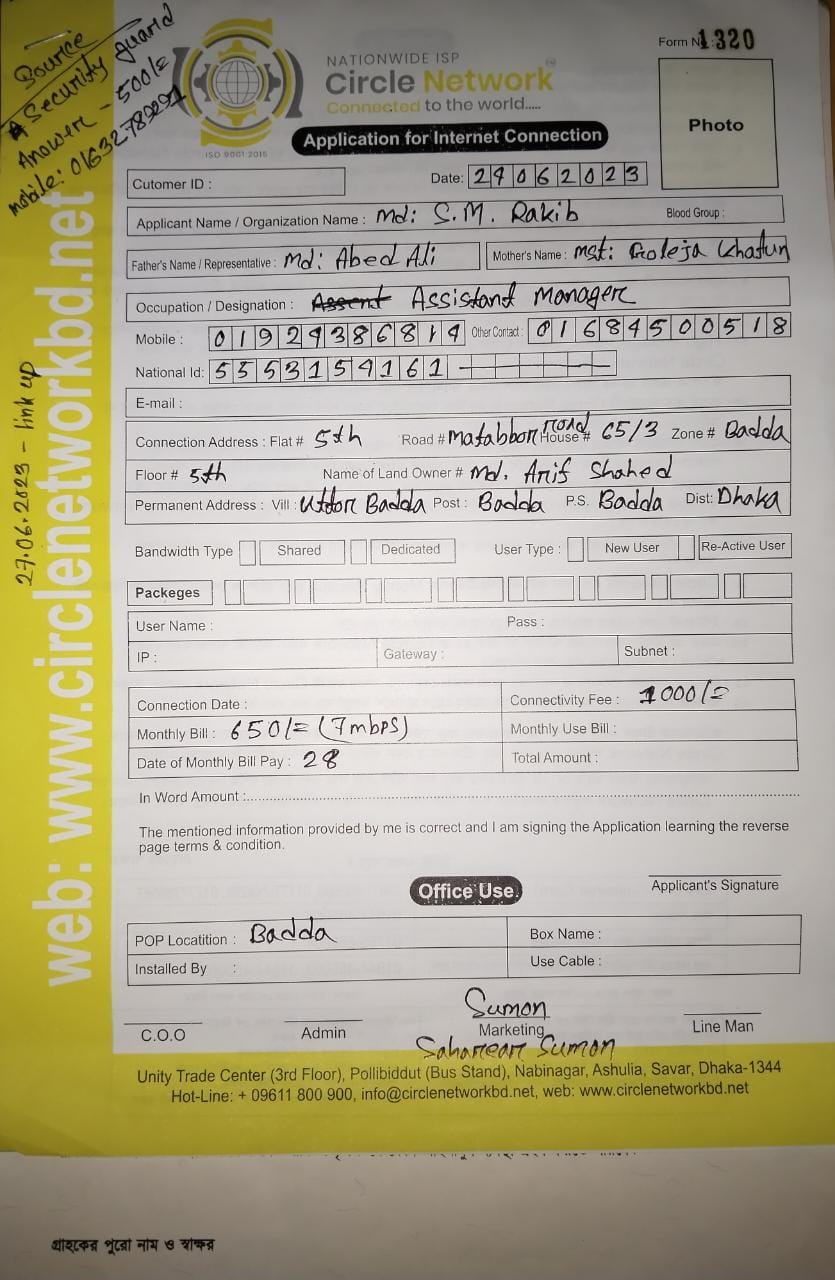 Source
Security guard
Anower - 500/=
mobile: 01632789291
27.06.2023 - link up
web: www.circlenetworkbd.net
NATIONWIDE ISP
Circle Network
Connected to the world.....
ISO 9001:2015
Form N : 1320
Photo
Application for Internet Connection
Cutomer ID :
Date: 24062023
Applicant Name / Organization Name : Md: S.M. Rakib Blood Group :
Father's Name / Representative : Md: Abed Ali Mother's Name : Mst: Goleja Khatun
Occupation / Designation : Assistand Manager
Mobile : 01924386814 Other Contact : 01684500518
National Id: 5553154161
E-mail :
Connection Address : Flat # 5th Road # Matabbor road House # 65/3 Zone # Badda
Floor # 5th Name of Land Owner # Md. Arif Shahed
Permanent Address : Vill : Uttor Badda Post : Badda P.S. Badda Dist: Dhaka
Bandwidth Type Shared Dedicated User Type : New User Re-Active User
Packeges
User Name : Pass :
IP : Gateway : Subnet :
Connection Date : Connectivity Fee : 1000/=
Monthly Bill : 650/= (7mbps) Monthly Use Bill :
Date of Monthly Bill Pay : 28 Total Amount :
In Word Amount :
The mentioned information provided by me is correct and I am signing the Application learning the reverse
page terms & condition.
Applicant's Signature
Office Use.
POP Locatition : Badda Box Name :
Installed By : Use Cable :
Sumon
C.O.O Admin Marketing Line Man
Sahanear Sumon
Unity Trade Center (3rd Floor), Pollibiddut (Bus Stand), Nabinagar, Ashulia, Savar, Dhaka-1344
Hot-Line: + 09611 800 900, info@circlenetworkbd.net, web: www.circlenetworkbd.net
গ্রাহকের পুরো নাম ও স্বাক্ষর